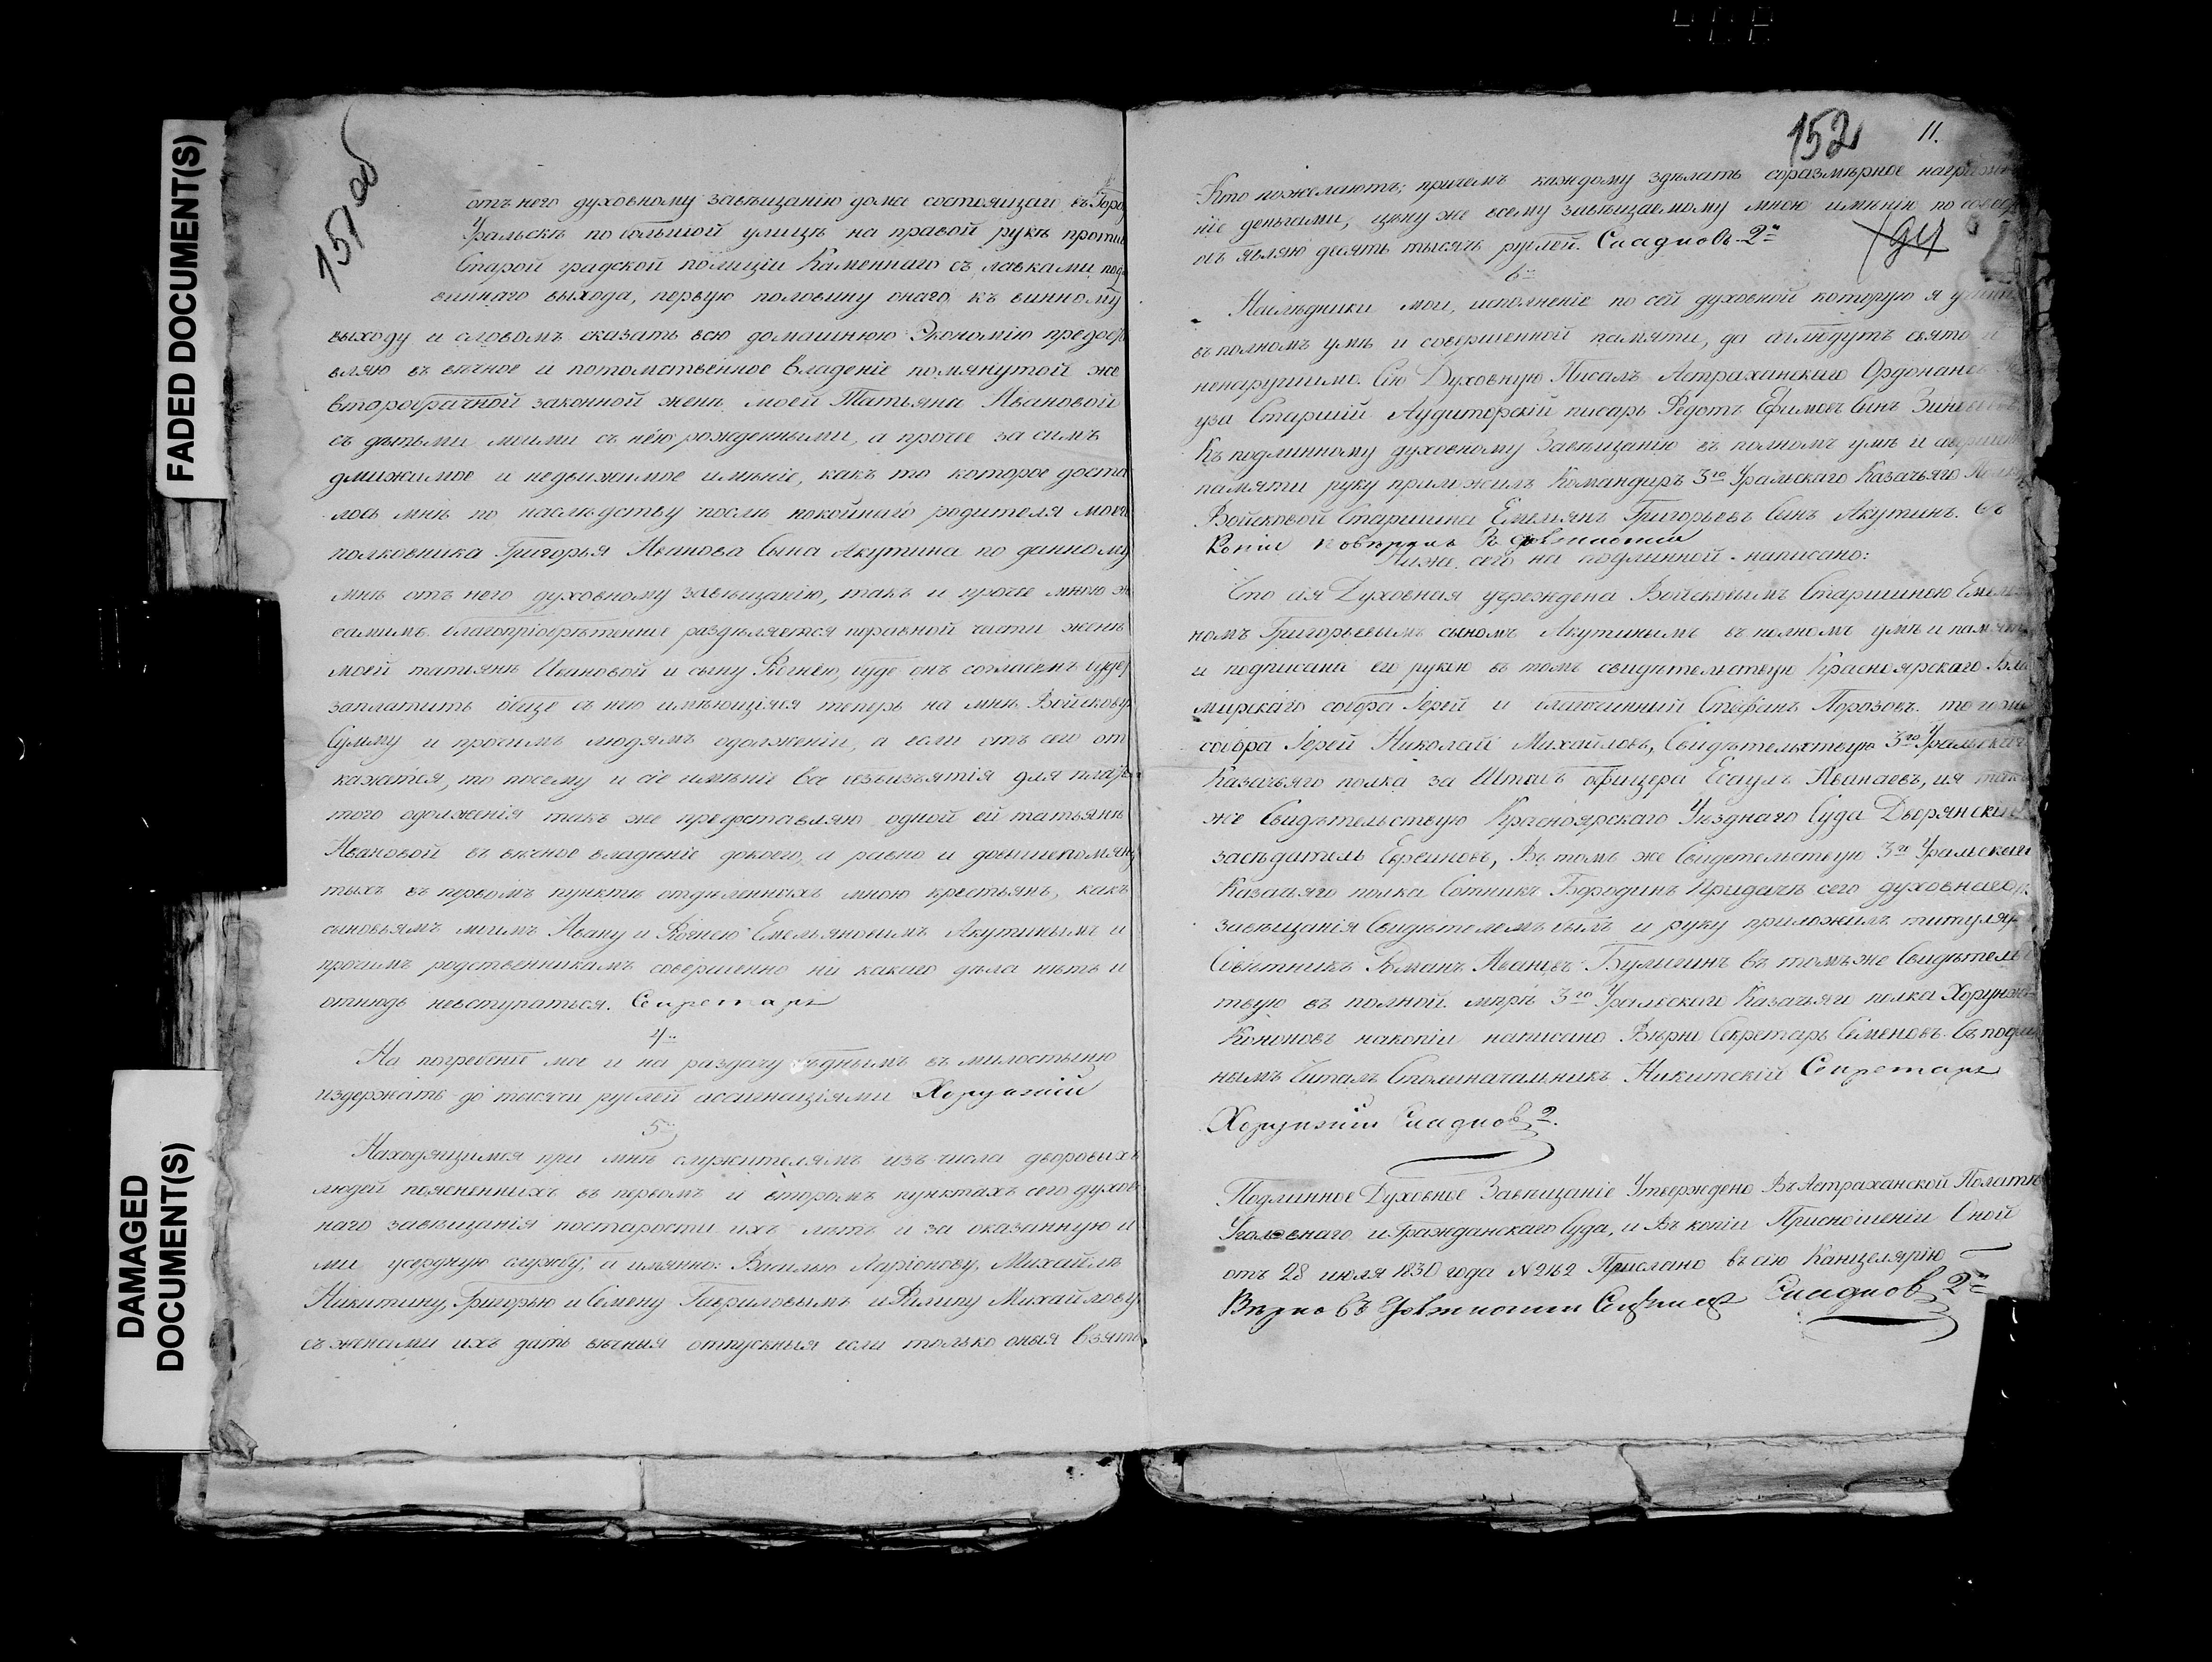 FADED DOCUMENT(S)
DAMAGED
DOCUMENT(S)
151 об
отъ него духовному завѣщанію доме состоящаго въ Горо
Уральскѣ по большой улицѣ на правой рукѣ против
Старой градской полиціи Каменнаго съ лавками, под
виннаго выхода, первую половину онаго къ винному
выходу и словомъ сказать всю домашнюю Экономію предост
вляю въ вѣчное и потомственное владеніе помянутой же
второбрачной законной жене моей Татьяне Ивановой
съ дѣтьми моими съ нею рожденными, а прочее за симъ
движимое и недвижимое имѣніе, какъ то которое доста
лось мнѣ по наслѣдству послѣ покойнаго родителя моего
полковника Григорья Иванова Сына Акутина по данному
мнѣ отъ него духовному завѣщанію, такъ и прочее мною ж
самимъ благопріобрѣтенное раздѣляется поравной части женѣ
моей татьянѣ Ивановой и сыну, буде онъ согласенъ будет
заплатить обще съ нею имѣющіяся теперь на мнѣ Войскову
Сумму и прочимъ людямъ одолженіи, а если отъ сего от
кажется, то посему и сіе имѣніе все безъизъятія для плат
того одолженія такъ же предоставляю одной ей татьянѣ
Ивановой въ вѣчное владѣніе до коего, а равно и довышепомяну
тыхъ въ первомъ пунктѣ отделенныхъ мною крестьянъ, какъ
сыновьямъ моимъ Ивану и Емельяновымъ Акутинымъ и
прочимъ родственникамъ совершенно ни какого дѣла нѣтъ и
отнюдь невступаться. Секретарь
4е
На погребеніе мое и на раздачу бѣднымъ въ милостыню
издержать до тысячи рублей ассигнаціями Хорунжій
5е
Находящимся при мнѣ служителямъ изъ числа дворовыхъ
людей поясненныхъ въ первомъ и второмъ пунктахъ сего духов
наго завѣщанія постарости ихъ лѣтъ и за оказанную и
ми усердную службу, а имянно: Василью Ларіонову, Михайлѣ
Никитину, Григорью и Семену Гавриловымъ и Филипу Михайлову
съ женами ихъ дать вѣчныя отпускныя если только оныя взять
152 11.
Кто пожелаютъ; причемъ каждому здѣлать соразмѣрное награжде
ніе деньгами, цѣну же всему завѣщаемому мною имѣнію по
объявляю десять тысячъ рублей. Сладковъ 2й
6е
Наслѣдники мои, исполненіе по сей духовной которую я
въ полномъ умѣ и совершенной памяти, да блюдутъ свято и
ненарушимо. Сію Духовную Писалъ Астраханскаго Ордонансъ
уза Старшій Аудиторскій писарь Федотъ Ефимовъ Сынъ
Къ подлинному духовному Завѣщанію въ полномъ умѣ и
памяти руку приложилъ Командиръ 3го Уральскаго Казачьяго
Войсковой Старшина Емельянъ Григорьевъ Сынъ Акутинъ. Съ
Копіи
Ниже сего на подлинной написано:
Что сія Духовная учреждена Войсковымъ Старшиною Емель
номъ Григорьевымъ сыномъ Акутинымъ въ полномъ умѣ и памят
и подписана его рукою въ томъ свидѣтельствую Красноярскаго Вла
мирскаго собора Іерей и благочинный Стефанъ Порозовъ. того же
собора Іерей Николай Михайловъ, Свидѣтельствую 3го Уральскаго
Казачьяго полка за Штабъ офицера Есаулъ, ия так
же Свидѣтельствую Красноярскаго Уѣзднаго Суда Дворянскій
засѣдатель Евреиновъ, Въ томъ же Свидетельствую 3го Уральскаго
Казачьяго полка Сотникъ Бородинъ Придачѣ сего духовнаго
завѣщанія Свидѣтелемъ былъ и руку приложилъ титуляр
Совѣтникъ Романъ Ивановъ Булыгинъ въ томъ же Свидѣтельс
твую въ полной мѣрѣ 3го Уральскаго Казачьяго полка Хорунж
Кононовъ на копіи написано Вѣрно Секретарь Семеновъ. Съ подли
нымъ Читалъ Столоначальникъ Никитскій Секретарь
Хорунжій Сладковъ 2.
Подлинное Духовное Завѣщаніе Утверждено Въ Астраханской Полатѣ
Уголовнаго и Гражданскаго Суда, и Въ копіи Приснош​еніи Оной
отъ 28 июля 1830 года № 2162 Прислано въ сію Канцелярію
Вѣрно Въ Сладковъ 2й